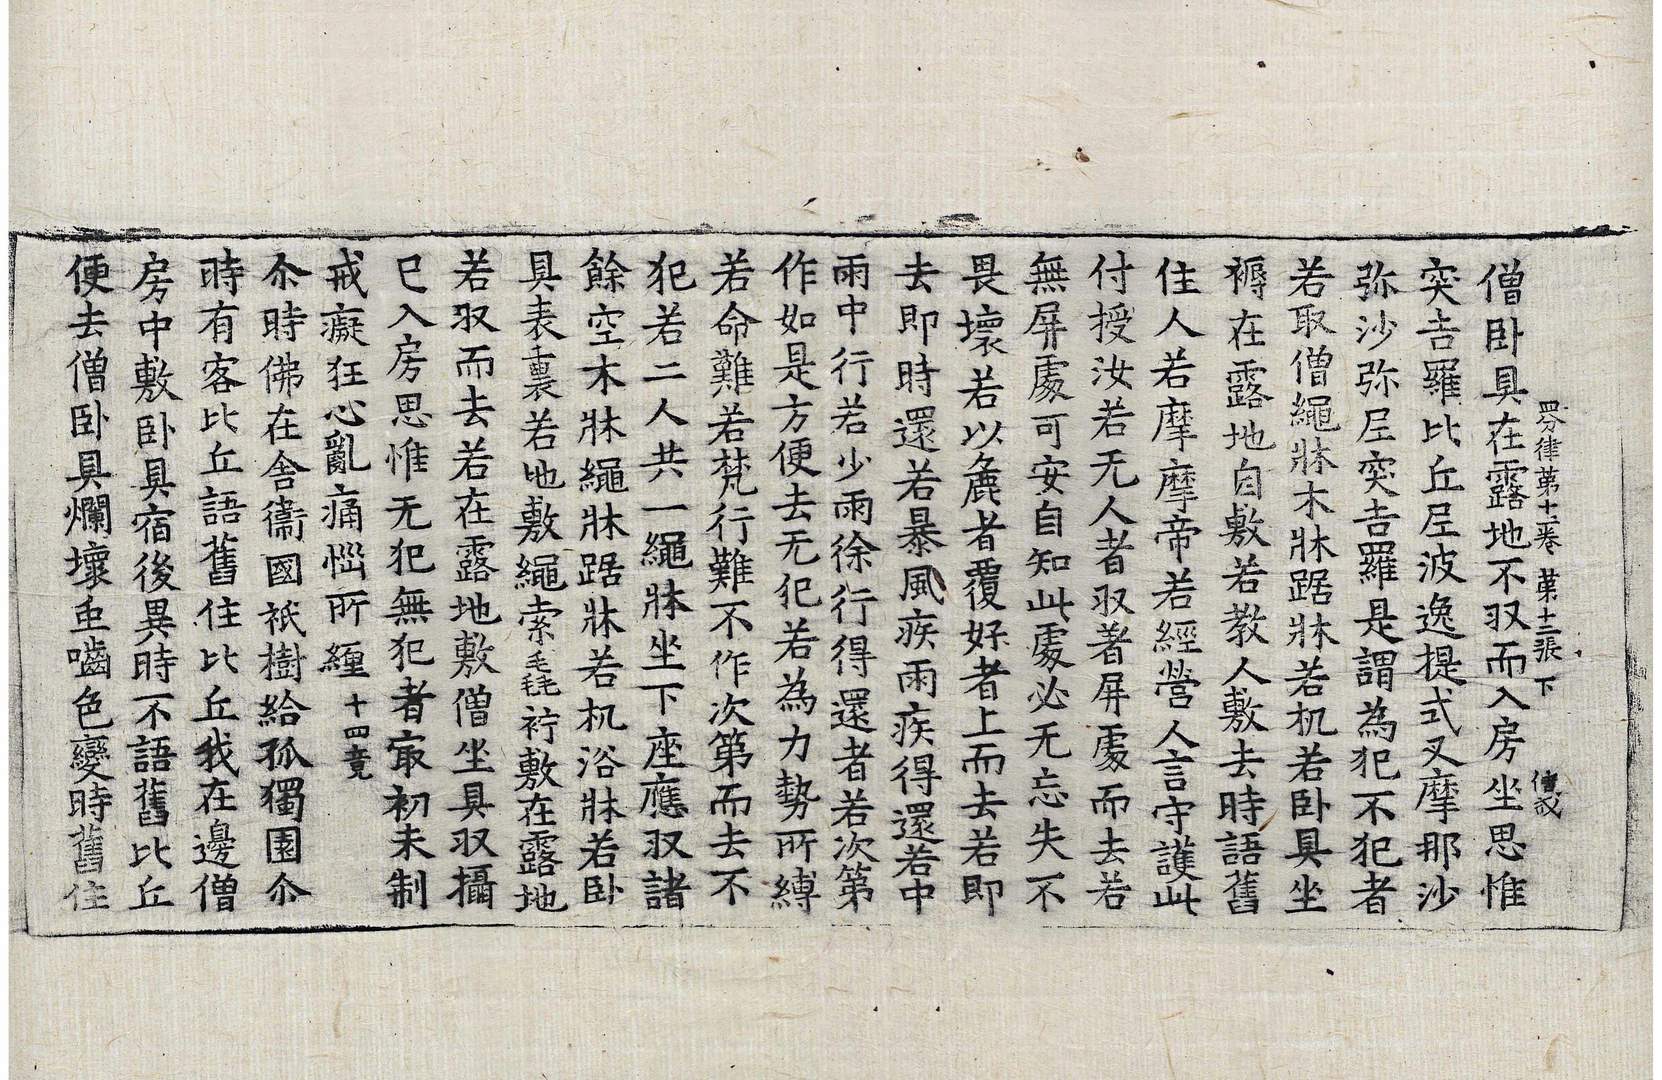 僧卧具在露地不㕝而入房坐思惟
突吉羅比丘尼波逸提式叉摩那沙
弥沙弥尼突吉羅是謂為犯不犯者
若取僧繩牀木牀踞牀若机若卧具坐
褥在露地自敷若教人敷去時語舊
住人若摩摩帝若經營人言守護此
付授汝若无人者取著屏處而去若
無屏處可安自知此處必无忘失不
畏壞若以麁者覆好者上而去若即
去即時還若暴風疾雨疾得還若中
雨中行若少雨徐行得還者若次第
作如是方便去无犯若為力勢所縛
若命難若梵行難不作次第而去不
犯若二人共一繩牀坐下座應取諸
餘空木牀繩牀踞牀若机浴牀若卧
具表裏若地敷繩索毛毳紵敷在露地
若取而去若在露地敷僧坐具取攝
已入房思惟无犯無犯者㝡初未制
戒癡狂心亂痛惱所纏 十四竟
尒時佛在舍衞國祇樹給孤獨園尒
時有客比丘語舊住比丘我在邊僧
房中敷卧具宿後異時不語舊比丘
便去僧卧具爛壞虫嚙色變時舊住